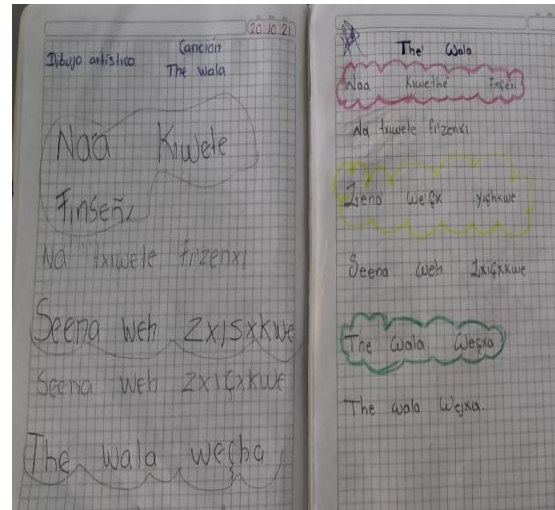 20 10 21
Dibujo artístico
Canción
The wala
Naa Kiwete
Finseñi
Na txiwete fi'zenxi
Seena weh zxisxkwe
Seena weh zxiçxkwe
The wala weçha
The' Wala
Naa Kiwethe' Finseni
Na txiwete fi'zenxi
weçx yiçhkwe
Seena weh zxiçxkwe
The Wala Weçxa
The wala Wejxa.